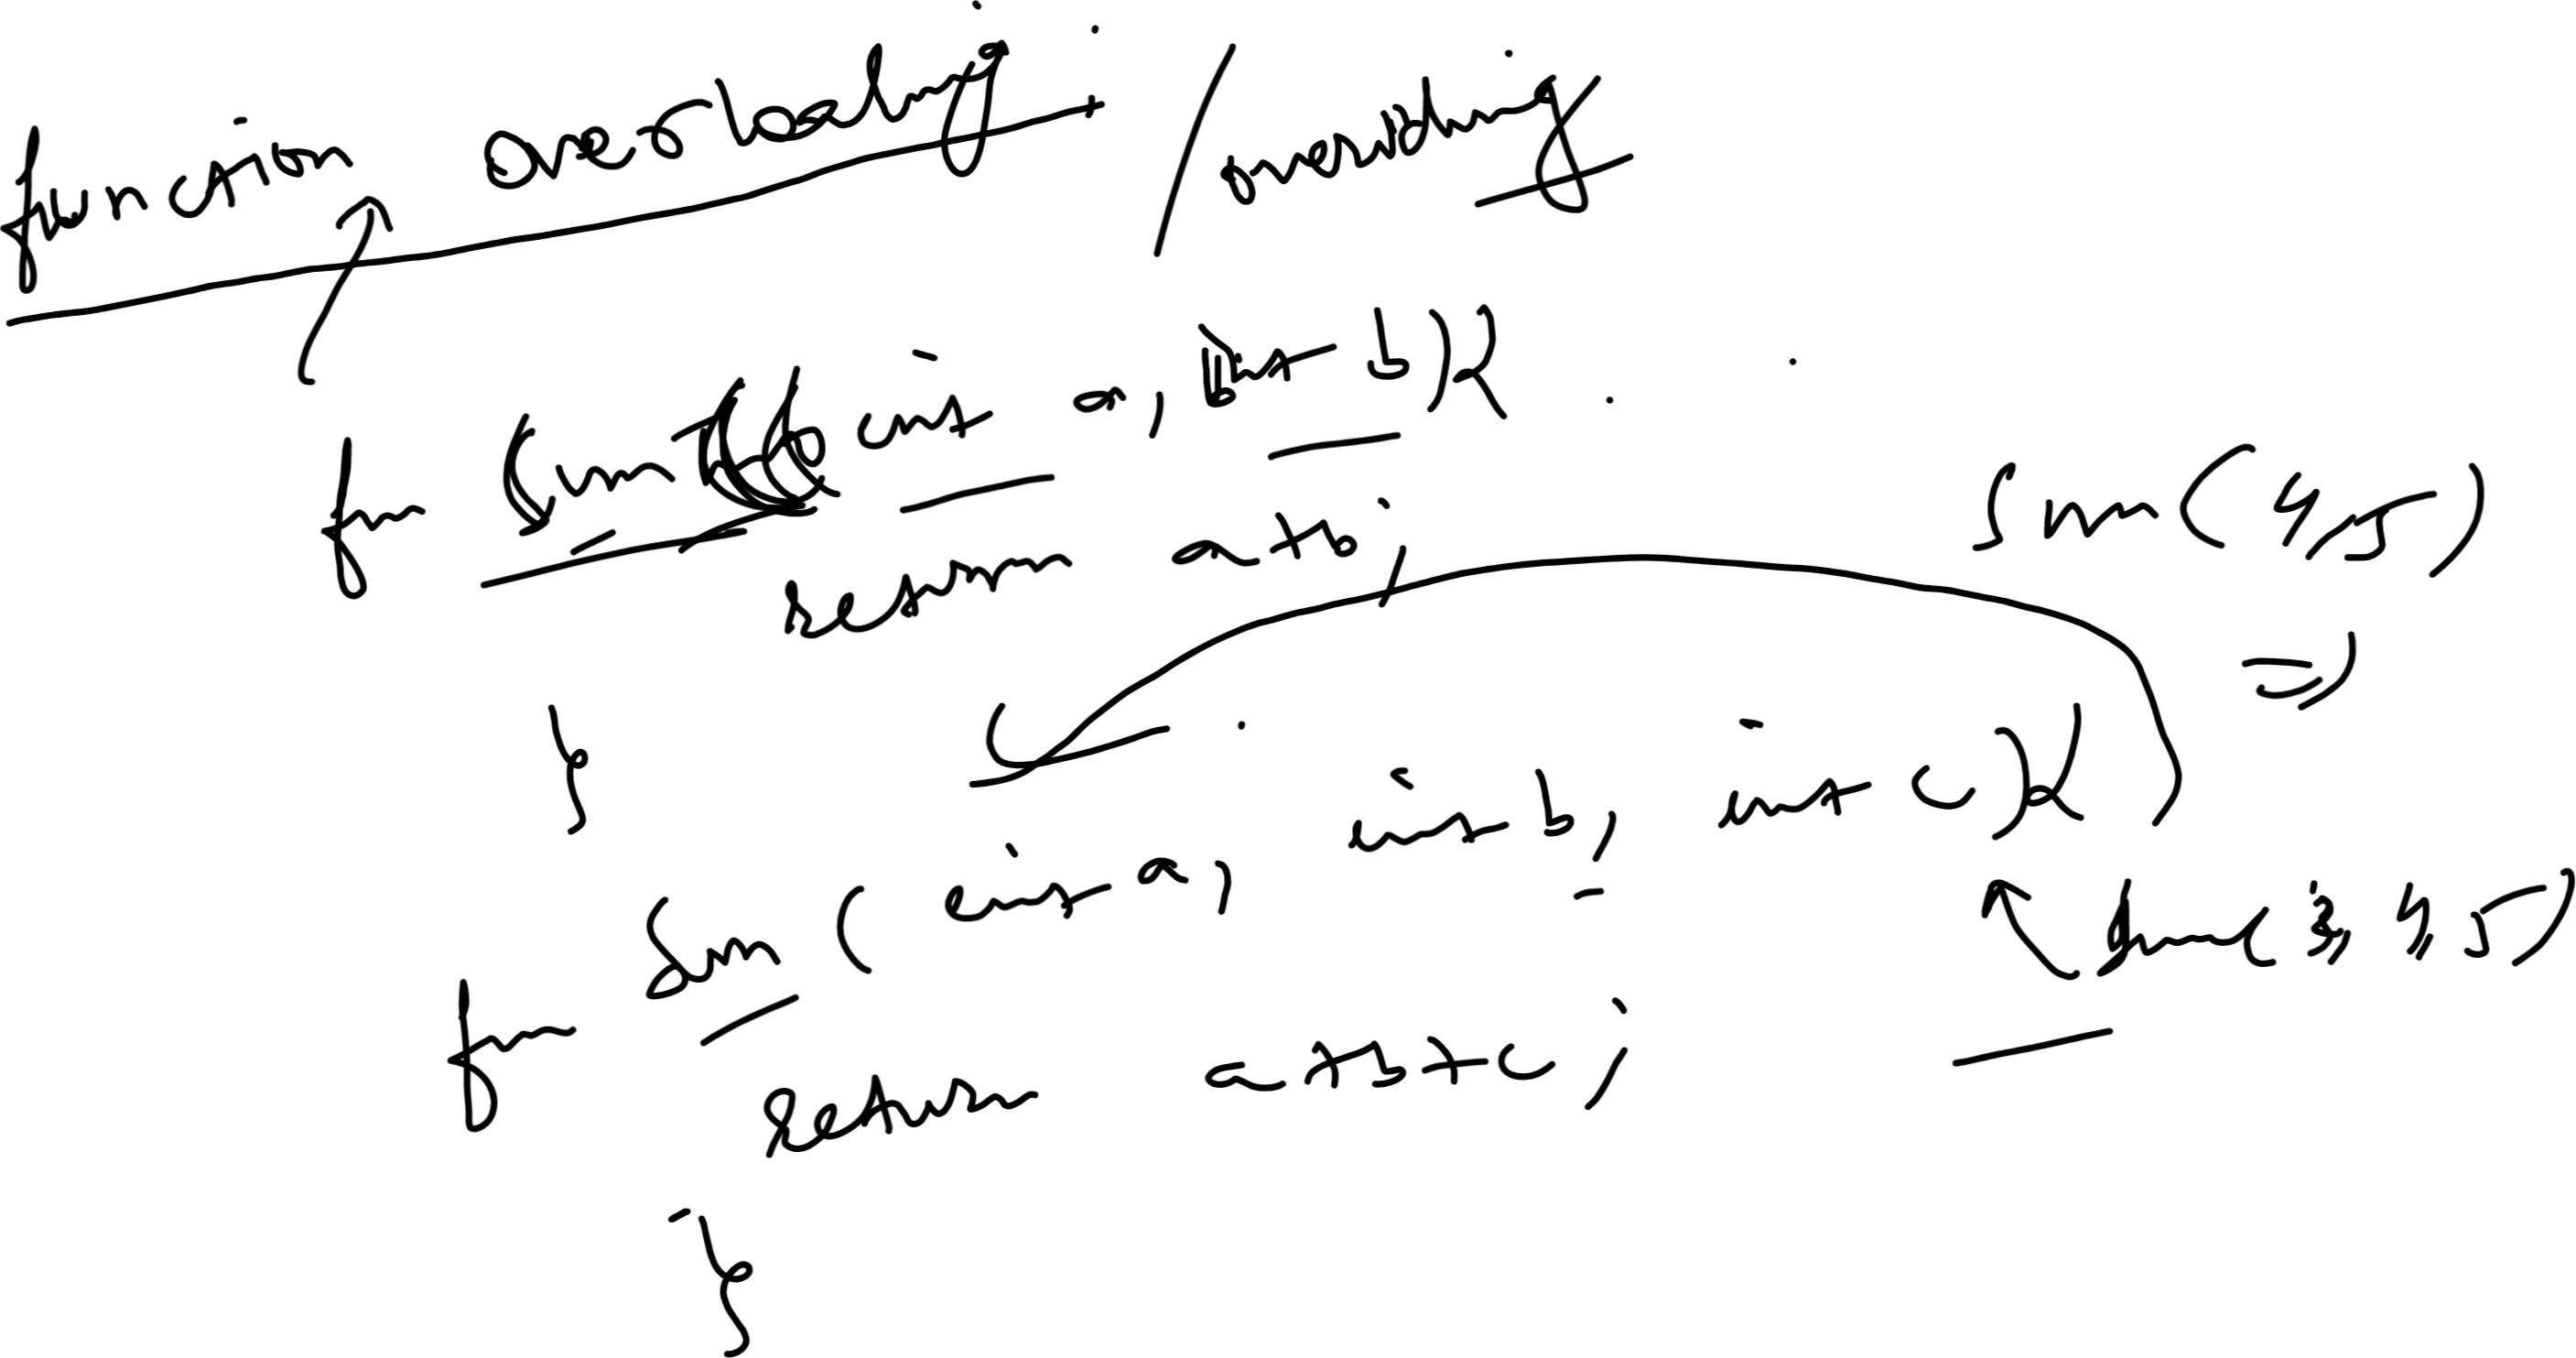 function overloading / overriding
fun sum ( int a, int b) {
return a+b;
}
sum(4,5)
=>
fun sum ( int a, int b, int c) {
return a+b+c;
}
sum(3,4,5)